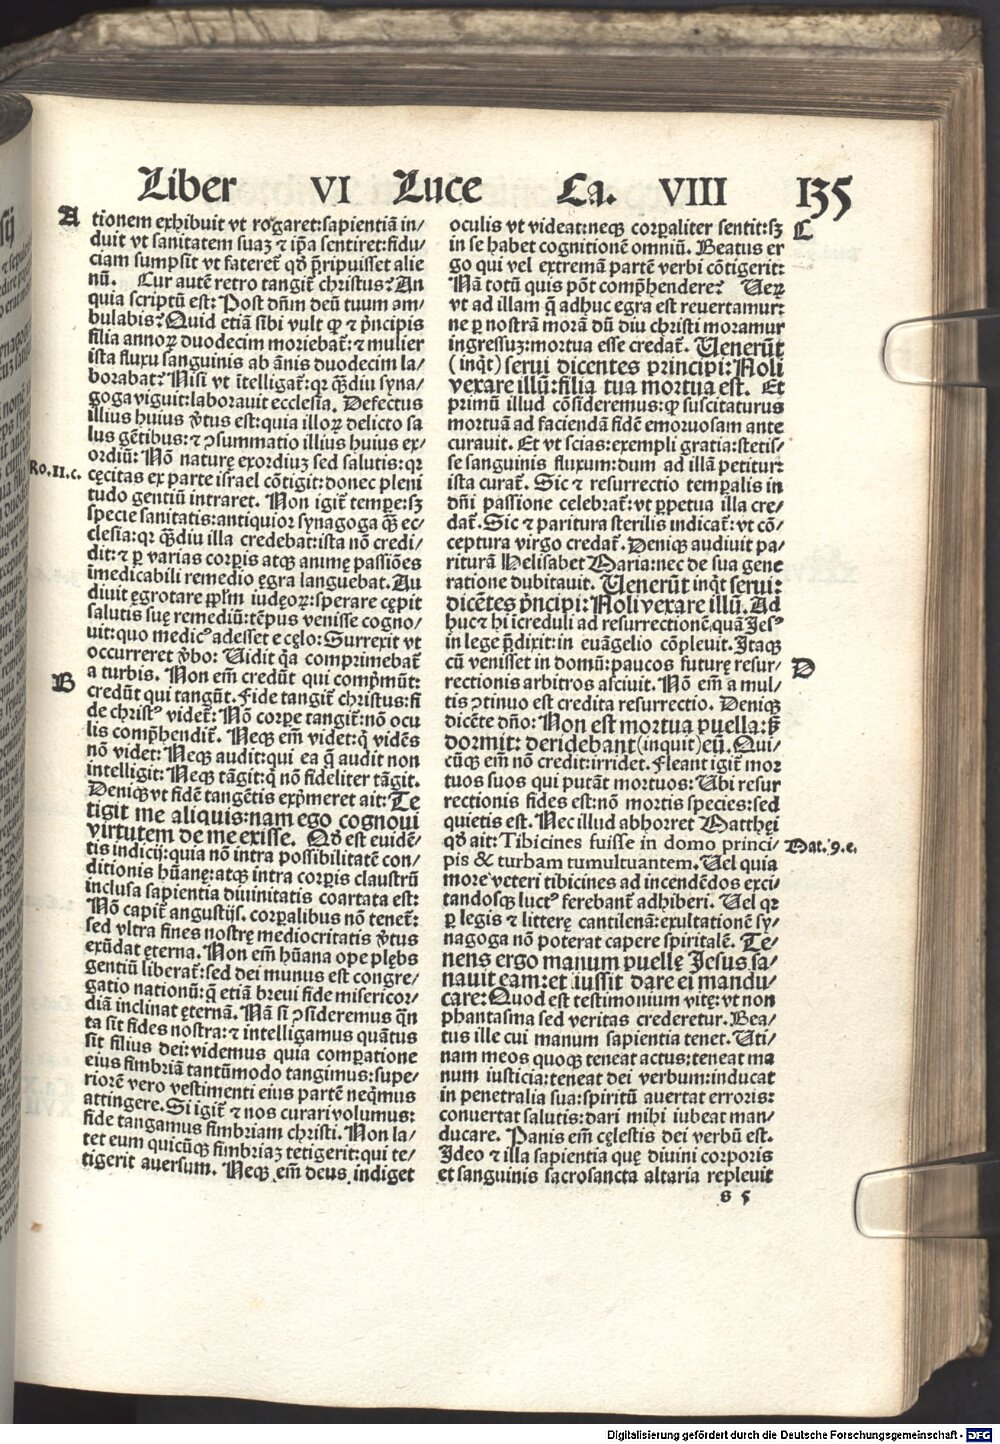 Liber VI Luce Ca. VIII 135
A
tionem exhibuit vt rogaret:sapientiā in/
duit vt sanitatem suaꝫ ⁊ ip̄a sentiret:fidu/
ciam sumpsit vt fateret̄ qđ p̄ripuisset alie
nū. Cur autē retro tangit̄ christus? An
quia scriptū est: Post dn̄m deū tuum am/
bulabis? Quid etiā sibi vult ꝙ ⁊ p̄ncipis
filia annoꝝ duodecim moriebat̄: ⁊ mulier
ista fluxu sanguinis ab ānis duodecim la/
borabat? Nisi vt ītelligat̄: qꝛ q̄ꝫdiu syna/
goga viguit: laborauit ecclesia. Defectus
illius huius v̄tus est: quia illoꝝ delicto sa
lus gētibus: ⁊ ꝯsummatio illius huius ex/
ordiū: Nō naturę exordiuꝫ sed salutis: qꝛ
Ro. 11. c.
cęcitas ex parte israel cōtigit: donec pleni
tudo gentiū intraret. Non igit̄ tempe: sꝫ
specie sanitatis: antiquior synagoga q̄ꝫ ec/
clesia: qꝛ q̄ꝫdiu illa credebat: ista nō credi/
dit: ⁊ ꝑ varias corꝑis atqꝫ animę passiōes
īmedicabili remedio ęgra languebat. Au
diuit ęgrotare ꝓpl̄m iudęoꝝ: sperare cępit
salutis suę remediū: tēpus venisse cogno/
uit: quo medicꝰ adesset e cęlo: Surrexit vt
occurreret v̄bo: Uidit q̄a comprimebat̄
B
a turbis. Non em̄ credūt qui comp̄mūt:
credūt qui tangūt. Fide tangit̄ christus: fi
de christꝰ videt̄: Nō corꝑe tangit̄: nō ocu
lis comp̄hendit̄. Neqꝫ em̄ videt: q̄ vidēs
nō videt: Neqꝫ audit: qui ea q̄ audit non
intelligit: Neqꝫ tāgit: q̄ nō fideliter tāgit.
Deniqꝫ vt fidē tangētis exp̄meret ait: Te
tigit me aliquis: nam ego cognoui
virtutem de me exisse. Qđ est euidē/
tis indicij: quia nō intra possibilitatē con/
ditionis hūanę: atqꝫ intra corꝑis claustrū
inclusa sapientia diuinitatis coartata est:
Nō capit̄ angustijs. corꝑalibus nō tenet̄:
sed vltra fines nostrę mediocritatis v̄tus
exūdat ęterna. Non em̄ hūana ope plębs
gentiū liberat̄: sed dei munus est congre/
gatio nationū: q̄ etiā breui fide misericor/
diā inclinat ęternā. Nā si ꝯsideremus q̄n
ta sit fides nostra: ⁊ intelligamus quātus
sit filius dei: videmus quia comꝑatione
eius fimbriā tantūmodo tangimus: supe/
riorē vero vestimenti eius partē neq̄mus
attingere. Si igit̄ ⁊ nos curari volumus:
fide tangamus fimbriam christi. Non la/
tet eum quicūqꝫ fimbriaꝫ tetigerit: qui te/
tigerit auersum. Neqꝫ em̄ deus indiget
oculis vt videat: neqꝫ corꝑaliter sentit: sꝫ
C
in se habet cognitionē omniū. Beatus er
go qui vel extremā partē verbi cōtigerit:
Nā totū quis pōt comp̄hendere? Ueꝝ
vt ad illam q̄ adhuc egra est reuertamur:
ne ꝑ nostrā morā dū diu christi moramur
ingressuꝫ: mortua esse credat̄. Uenerūt
(inq̄t) serui dicentes principi: Noli
vexare illū: filia tua mortua est. Et
primū illud cōsideremus: ꝙ suscitaturus
mortuā ad faciendā fidē emoruosam ante
curauit. Et vt scias: exempli gratia: stetis/
se sanguinis fluxum: dum ad illā petitur:
ista curat̄. Sic ⁊ resurrectio temꝑalis in
dn̄i passione celebrat̄: vt ꝑpetua illa cre/
dat̄. Sic ⁊ paritura sterilis indicat̄: vt cō/
ceptura virgo credat̄. Deniqꝫ audiuit pa/
riturā Helisabet Maria: nec de sua gene
ratione dubitauit. Uenerūt inq̄t serui:
dicētes p̄ncipi: Noli vexare illū. Ad
huc ⁊ hi īcreduli ad resurrectionē: quā Jesꝰ
in lege p̄dixit: in euāgelio cōpleuit. Itaqꝫ
cū venisset in domū: paucos futurę resur/
D
rectionis arbitros asciuit. Nō em̄ a mul/
tis ꝯtinuo est credita resurrectio. Deniqꝫ
dicēte dn̄o: Non est mortua puella: ꝫ
dormit: deridebant (inquit) eū. Qui/
cūqꝫ em̄ nō credit: irridet. Fleant igit̄ mor
tuos suos qui putāt mortuos: Ubi resur
rectionis fides est: nō mortis species: sed
quietis est. Nec illud abhorret Matthęi
qđ ait: Tibicines fuisse in domo princi/
Mat. 9. e.
pis & turbam tumultuantem. Uel quia
more veteri tibicines ad incendēdos exci/
tandosqꝫ luctꝰ ferebant̄ adhiberi. Uel qꝛ
ꝑ legis ⁊ litterę cantilenā: exultationē sy/
nagoga nō poterat capere spiritalē. Te/
nens ergo manum puellę Jesus sa/
nauit eam: et iussit dare ei mandu/
care: Quod est testimonium vitę: vt non
phantasma sed veritas crederetur. Bea/
tus ille cui manum sapientia tenet. Uti/
nam meos quoqꝫ teneat actus: teneat ma
num iusticia: teneat dei verbum: inducat
in penetralia sua: spiritū auertat erroris:
conuertat salutis: dari mihi iubeat man/
ducare. Panis em̄ cęlestis dei verbū est.
Ideo ⁊ illa sapientia quę diuini corporis
et sanguinis sacrosancta altaria repleuit
s 5
Digitalisierung gefördert durch die Deutsche Forschungsgemeinschaft - DFG